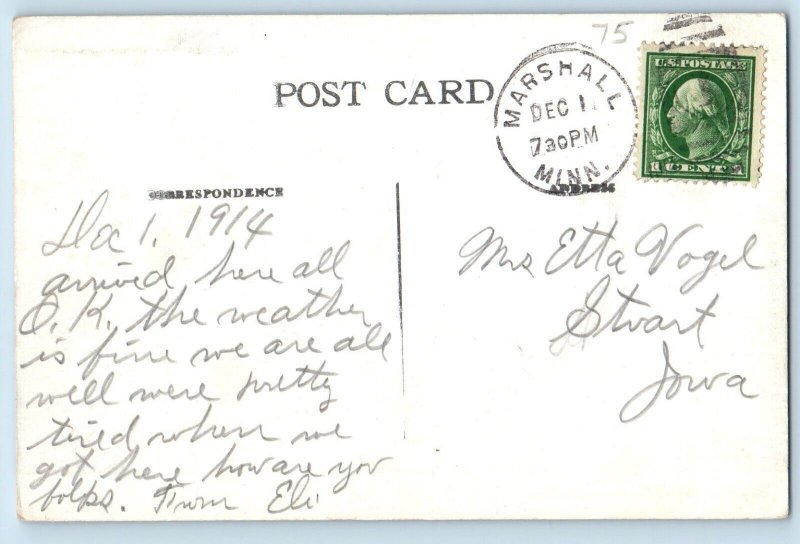 75
POST CARD
MARSHALL
DEC 1
730PM
MINN.
U.S. POSTAGE
1 CENT 1
CORRESPONDENCE
ADDRESS
Dec 1, 1914
arrived here all
O.K. the weather
is fine we are all
well were pretty
tired when we
got here how are you
folks. From Eli
Mrs Etta Vogel
Stuart
Iowa